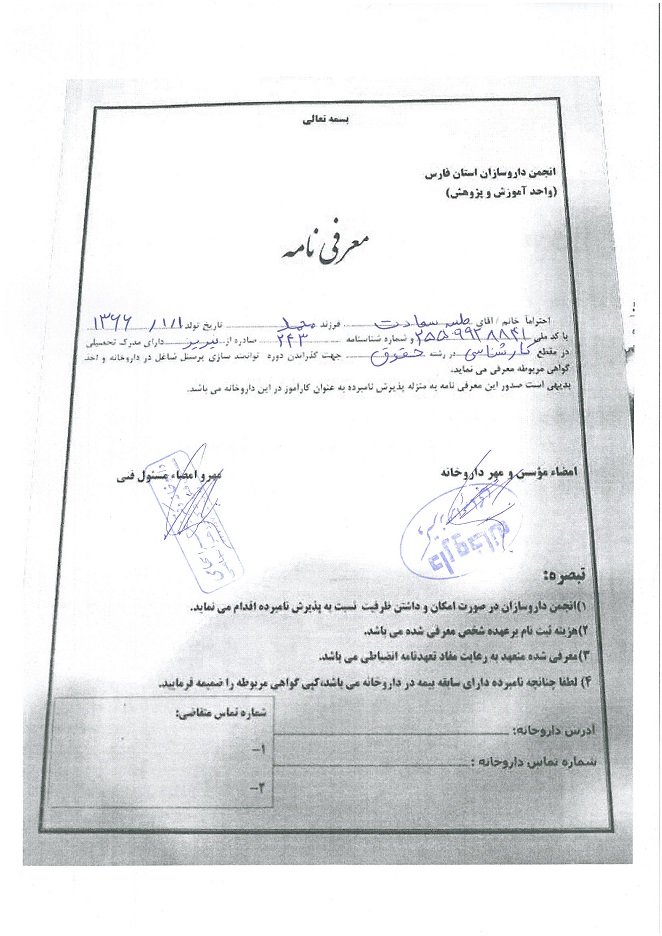 بسمه تعالی
انجمن داروسازان استان فارس
(واحد آموزش و پژوهش)
معرفی نامه
احتراماً خانم / آقای طیبه سعادت فرزند محمد تاریخ تولد ۱۳۶۶/۱/۱
با کد ملی ۲۵۵۹۹۲۸۸۴۱ و شماره شناسنامه ۲۴۳ صادره از نی‌ریز دارای مدرک تحصیلی
در مقطع کارشناسی در رشته حقوق جهت گذراندن دوره توانمند سازی پرسنل شاغل در داروخانه و اخذ
گواهی مربوطه معرفی می نماید.
بدیهی است صدور این معرفی نامه به منزله پذیرش نامبرده به عنوان کارآموز در این داروخانه می باشد.
امضاء مؤسس و مهر داروخانه
مهر و امضاء مسئول فنی
داروخانه
تبصره:
۱)انجمن داروسازان در صورت امکان و داشتن ظرفیت نسبت به پذیرش نامبرده اقدام می نماید.
۲)هزینه ثبت نام برعهده شخص معرفی شده می باشد.
۳)معرفی شده متعهد به رعایت مفاد تعهدنامه انضباطی می باشد.
۴) لطفا چنانچه نامبرده دارای سابقه بیمه در داروخانه می باشد،کپی گواهی مربوطه را ضمیمه فرمایید.
آدرس داروخانه:
شماره تماس داروخانه :
شماره تماس متقاضی:
۱-
۲-